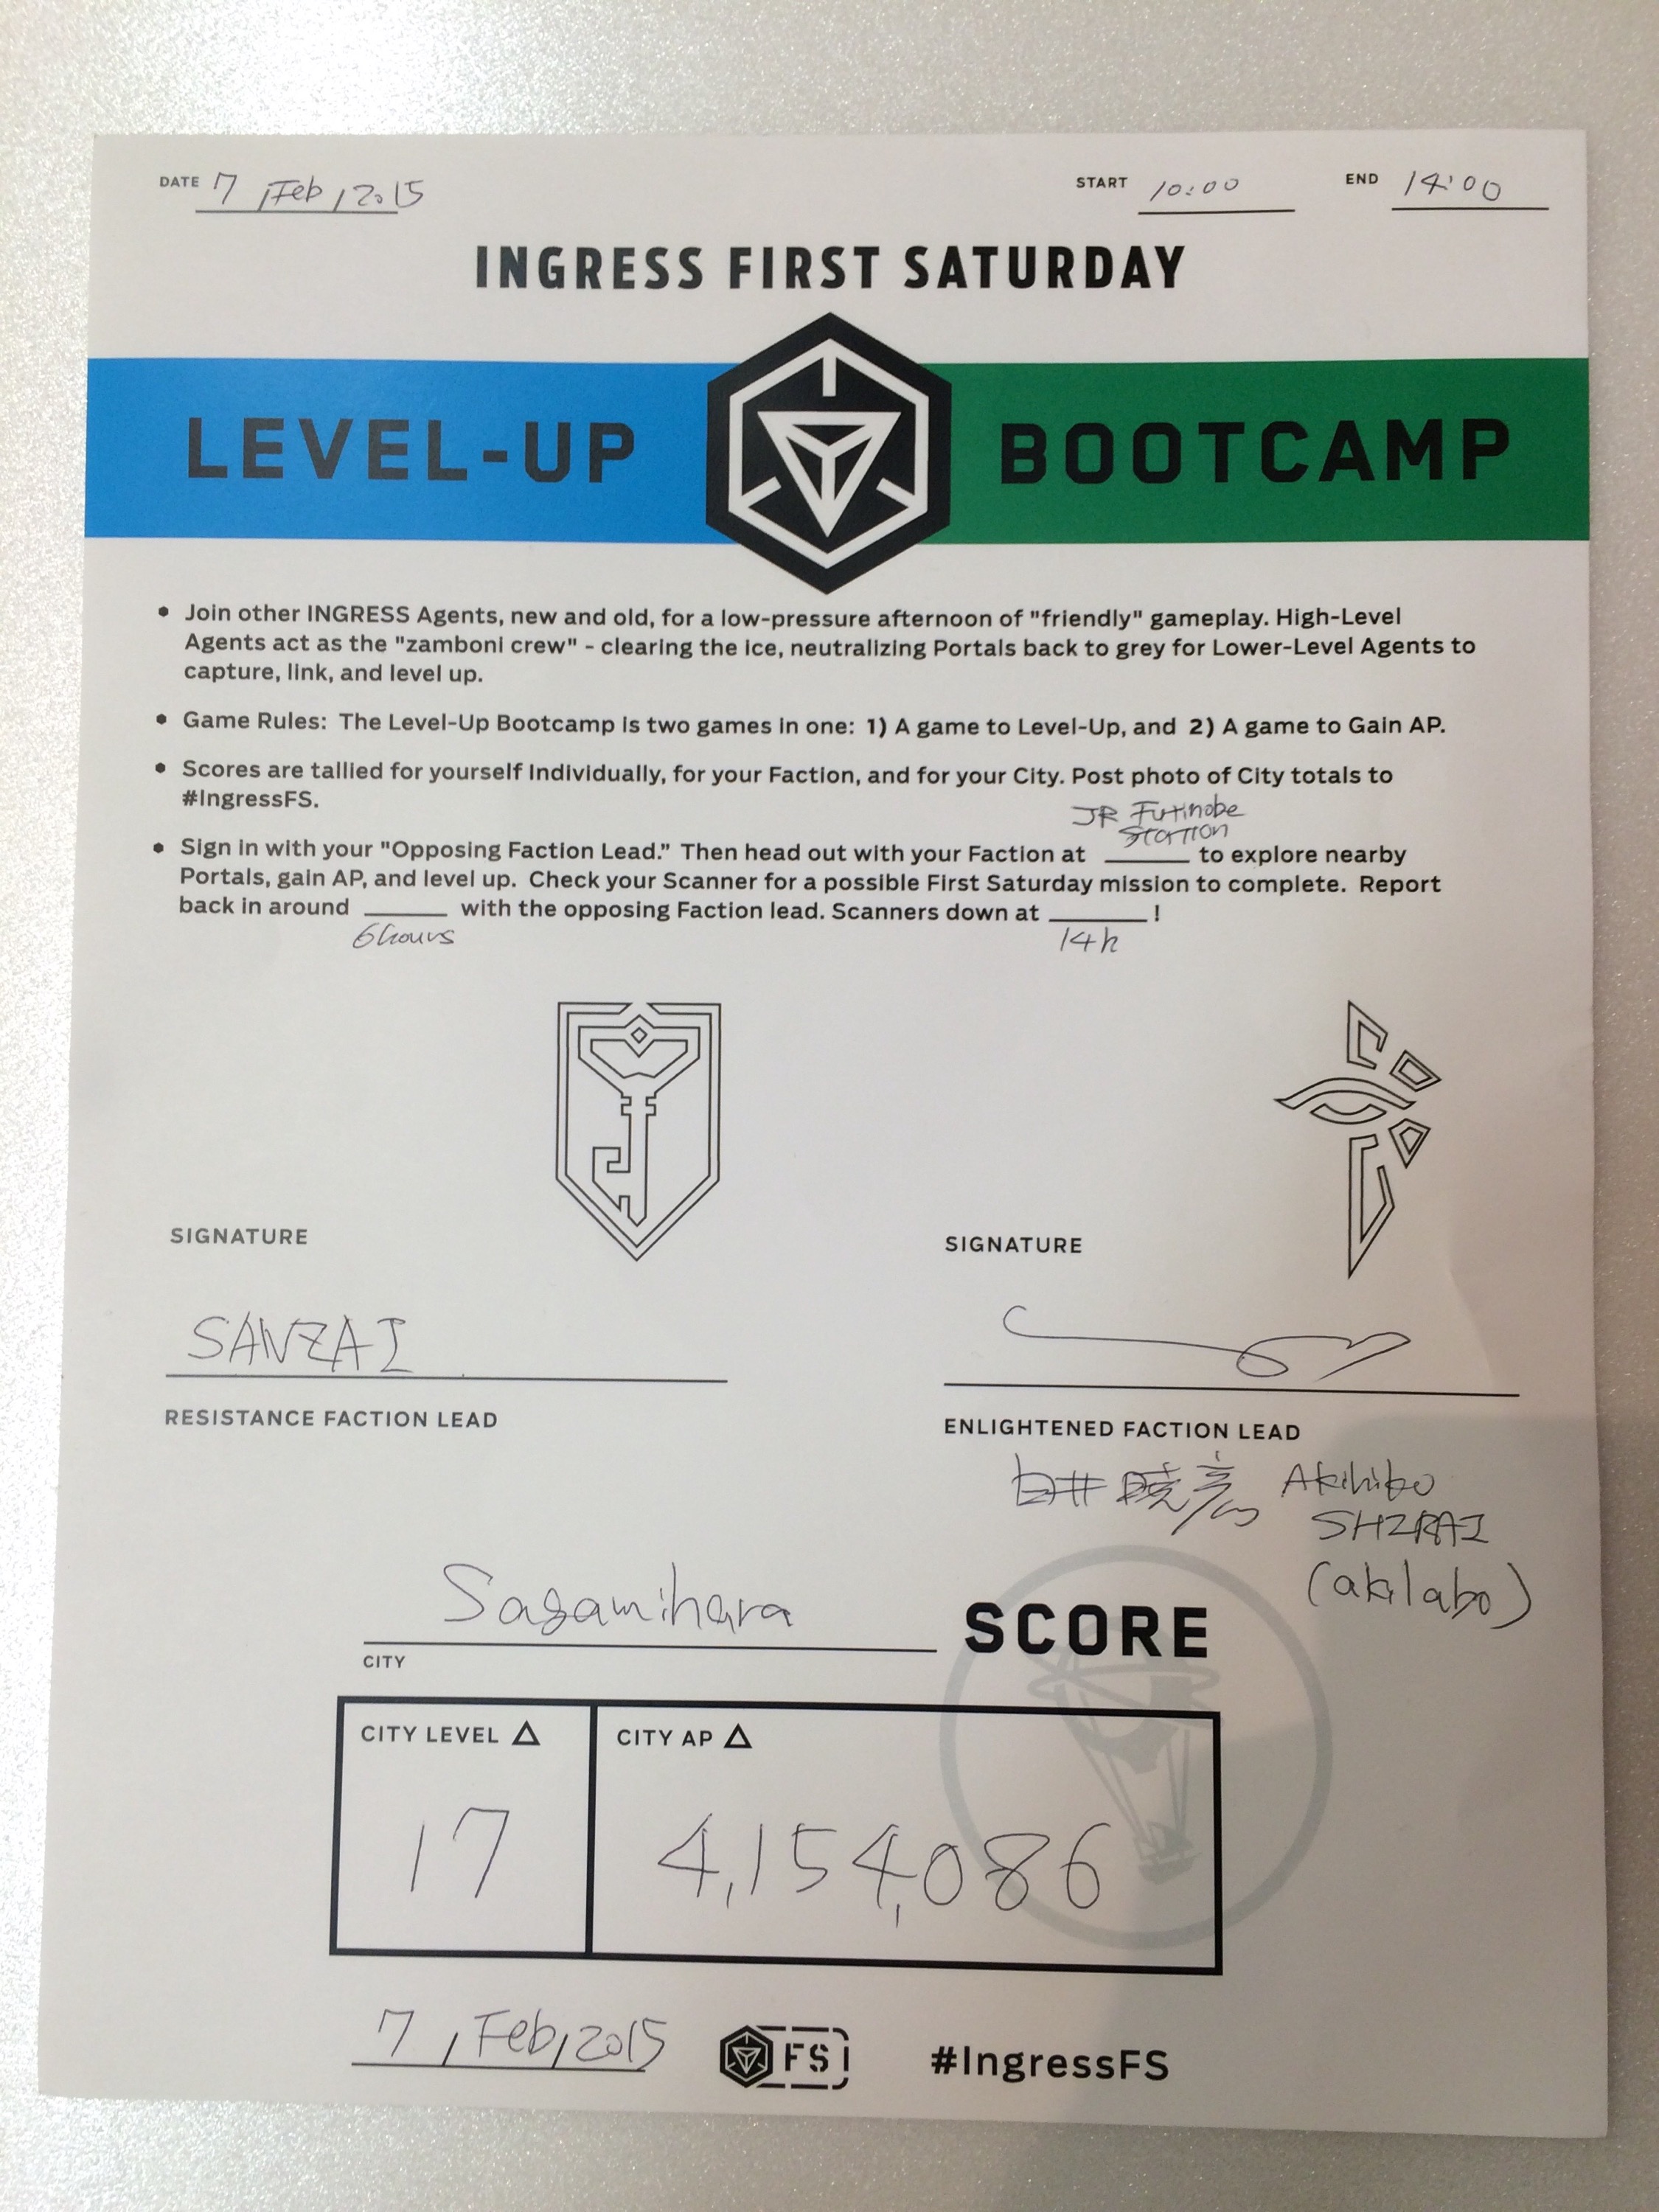 DATE 7 , Feb , 2015 START 10:00 END 14:00
INGRESS FIRST SATURDAY
LEVEL-UP BOOTCAMP
Join other INGRESS Agents, new and old, for a low-pressure afternoon of "friendly" gameplay. High-Level
Agents act as the "zamboni crew" - clearing the ice, neutralizing Portals back to grey for Lower-Level Agents to
capture, link, and level up.
Game Rules: The Level-Up Bootcamp is two games in one: 1) A game to Level-Up, and 2) A game to Gain AP.
Scores are tallied for yourself Individually, for your Faction, and for your City. Post photo of City totals to
#IngressFS.
JR Futinobe
Station
Sign in with your "Opposing Faction Lead." Then head out with your Faction at ______ to explore nearby
Portals, gain AP, and level up. Check your Scanner for a possible First Saturday mission to complete. Report
back in around ______ with the opposing Faction lead. Scanners down at ______ !
6hours 14h
SIGNATURE SIGNATURE
SANZAI
RESISTANCE FACTION LEAD ENLIGHTENED FACTION LEAD
白井暁彦 Akihiko
SHIRAI
(akilabo)
Sagamihara SCORE
CITY
CITY LEVEL △ CITY AP △
17 4,154,086
7 , Feb, 2015 FS #IngressFS